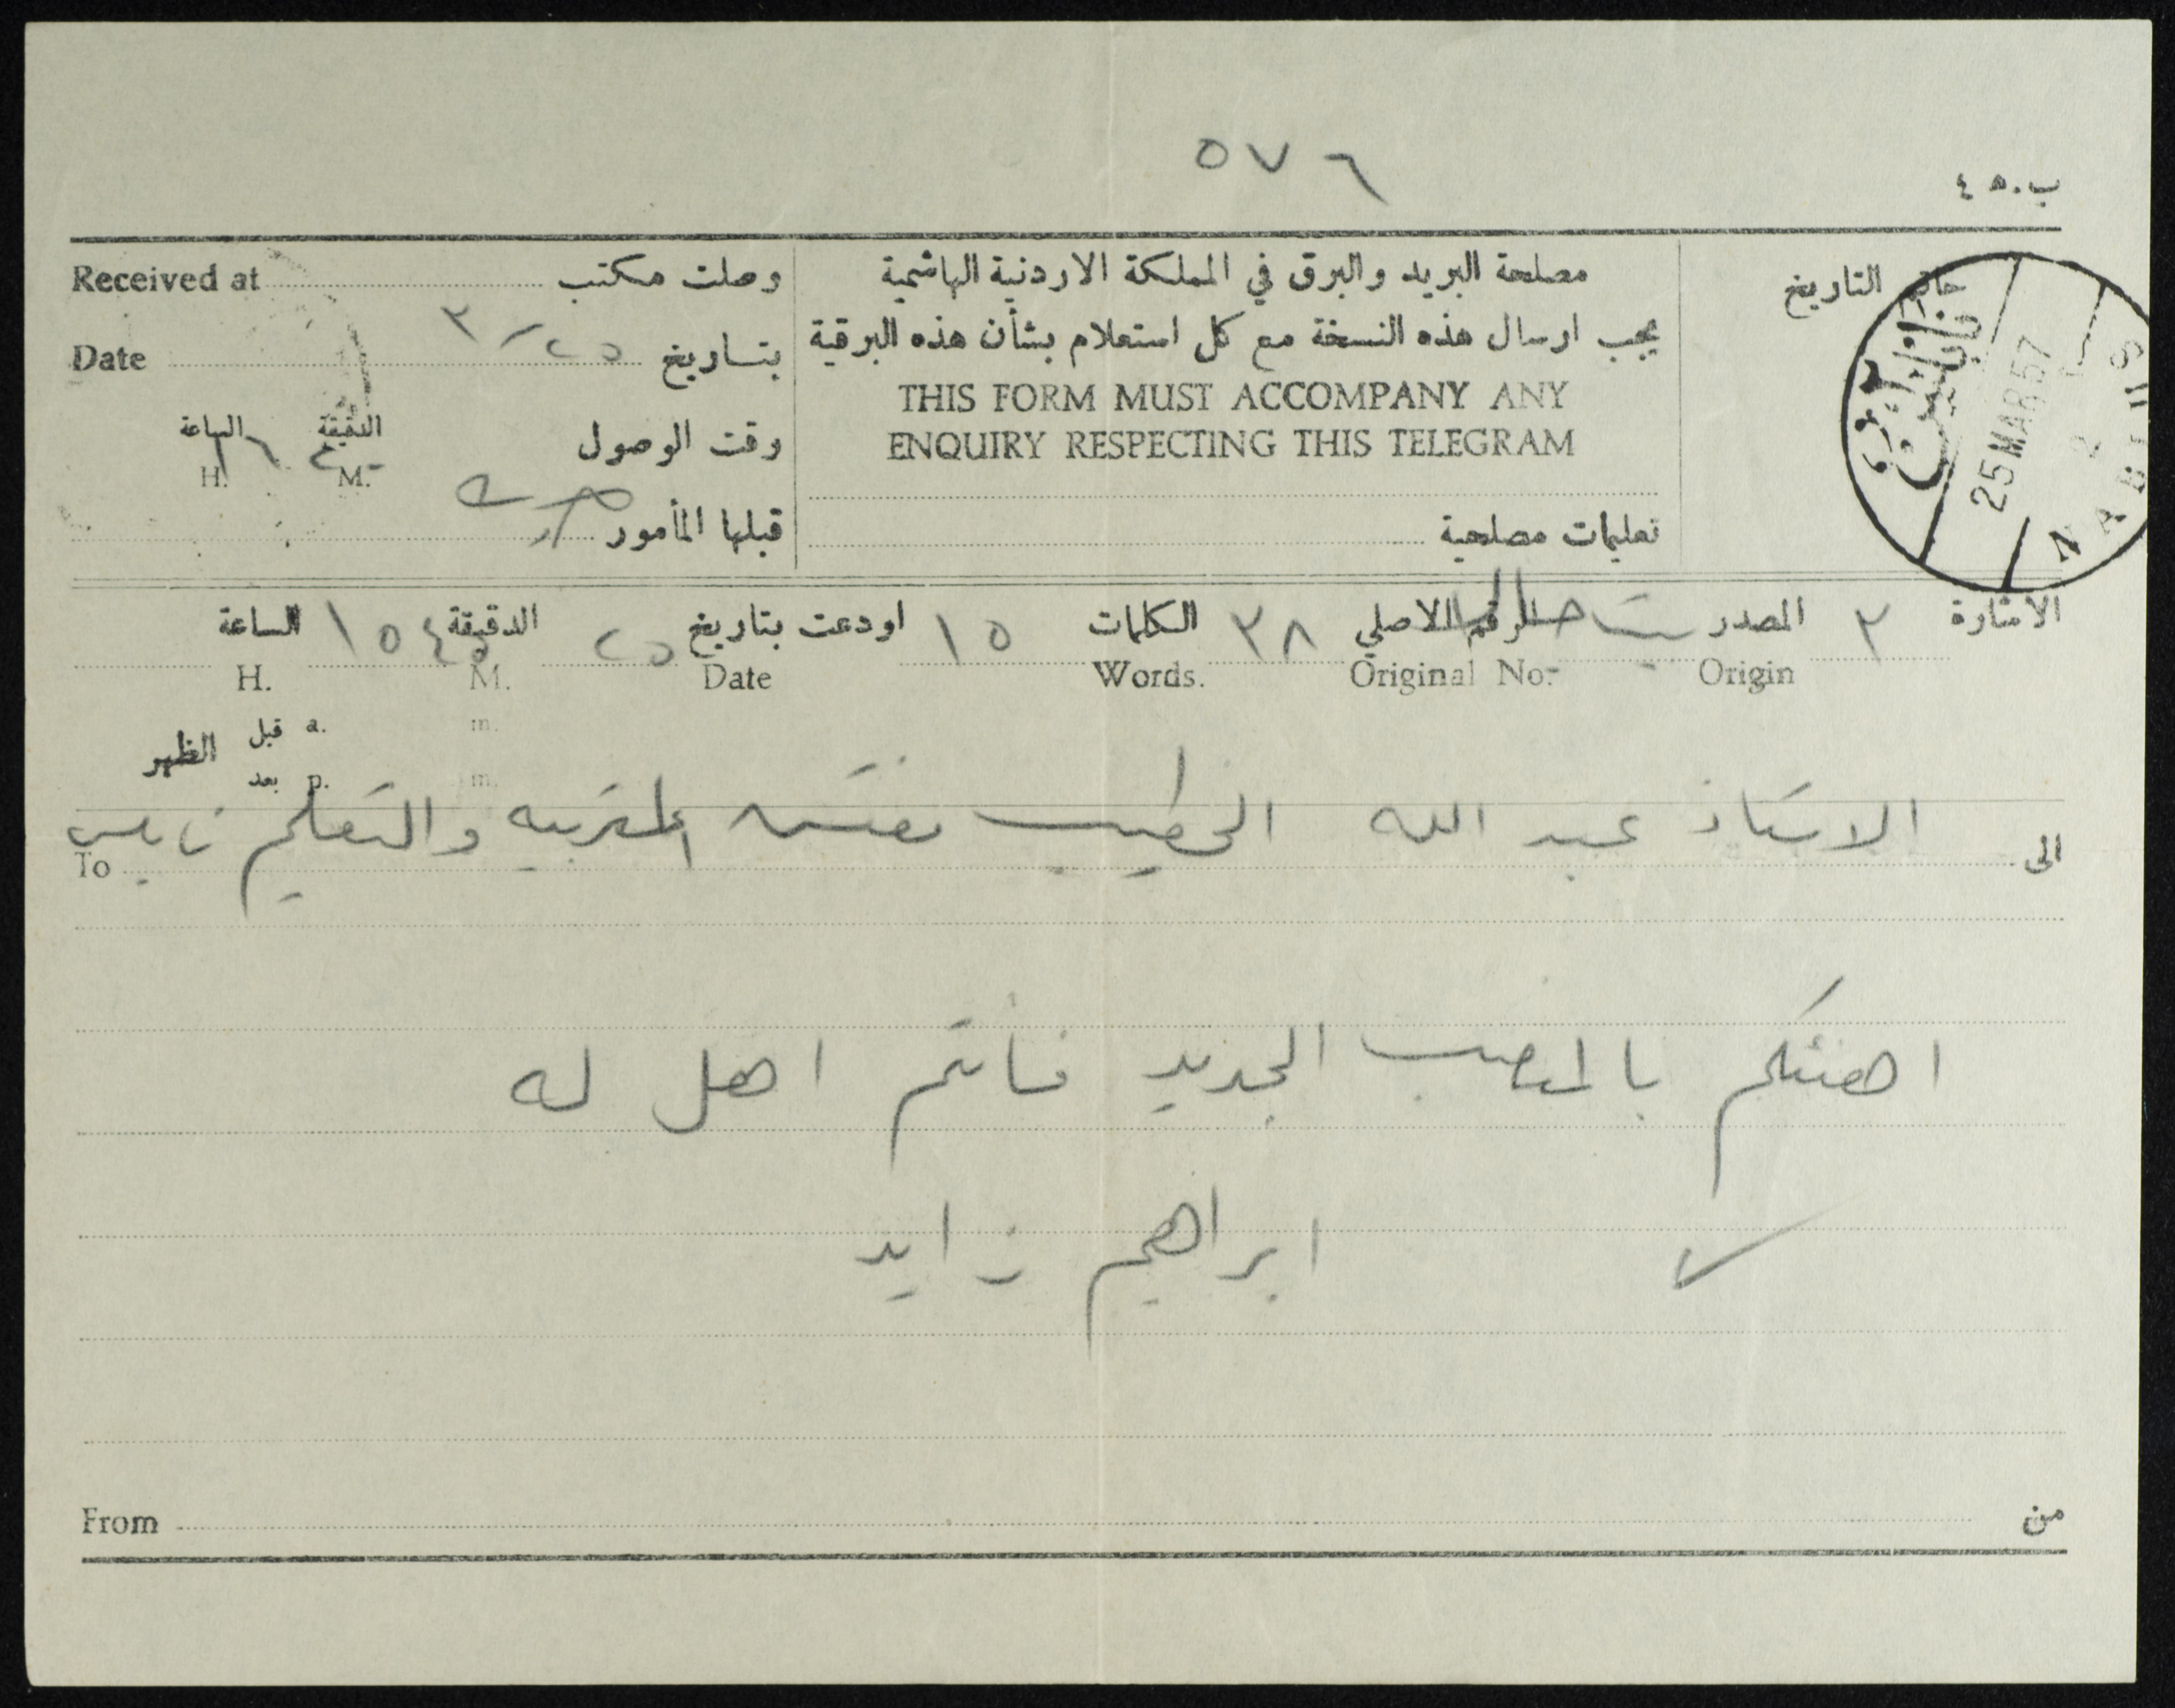 ٥٧٦
ب.٥٤
خاتم التاريخ
نابلس
25 MAR 57
NABLUS
مصلحة البريد والبرق في المملكة الاردنية الهاشمية
يجب ارسال هذه النسخة مع كل استعلام بشأن هذه البرقية
THIS FORM MUST ACCOMPANY ANY
ENQUIRY RESPECTING THIS TELEGRAM
تعليمات مصلحية
Received at وصلت مكتب
Date بتاريخ ٢٥/٣
وقت الوصول الدقيقة M. الساعة H. ١٦
قبلها المأمور
الاشارة ٣ المصدر Origin بيت جالا الرقم الاصلي Original No. ٣٨ الكلمات Words. ١٥ اودعت بتاريخ Date ٢٥ الدقيقة M. ٤٥ ١٥ الساعة H.
قبل a. m.
الظهر
بعد p. m.
الى الاستاذ عبد الله الخطيب مفتش التربيه والتعليم نابلس To
اهنئكم بالمنصب الجديد فأنتم اهل له
ابراهيم زايد
من From